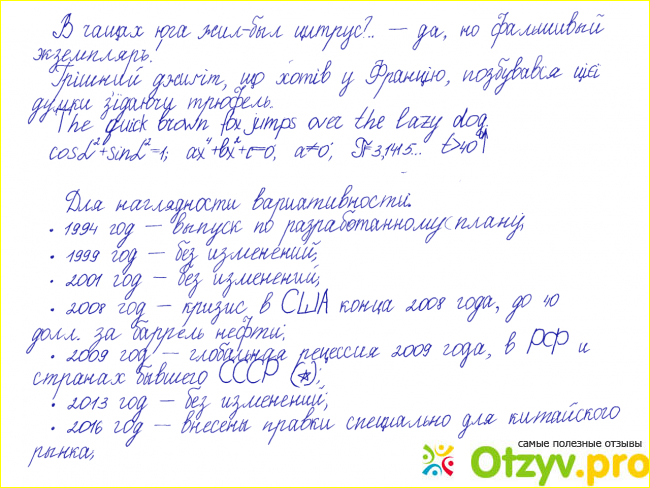 В чащах юга жил-был цитрус?.. — да, но фальшивый
экземпляръ.
Грішний джиґіт, що хотів у Францію, позбувався цієї
думки з'їдаючу трюфель.
The quick brown fox jumps over the lazy dog.
cosL²+sinL²=1; ax⁴+bx²+c=0; a≠0; П=3,1415... t>40°
Для наглядности вариативности.
• 1994 год — выпуск по разработанному плану;
• 1999 год — без изменений;
• 2001 год — без изменений;
• 2008 год — кризис в США конца 2008 года, до 40
долл. за баррель нефти;
• 2009 год — глобальная рецессия 2009 года, в РФ и
странах бывшего СССР (☆);
• 2013 год — без изменений;
• 2016 год — внесены правки специально для китайского
рынка;
самые полезные отзывы
Otzyv.pro